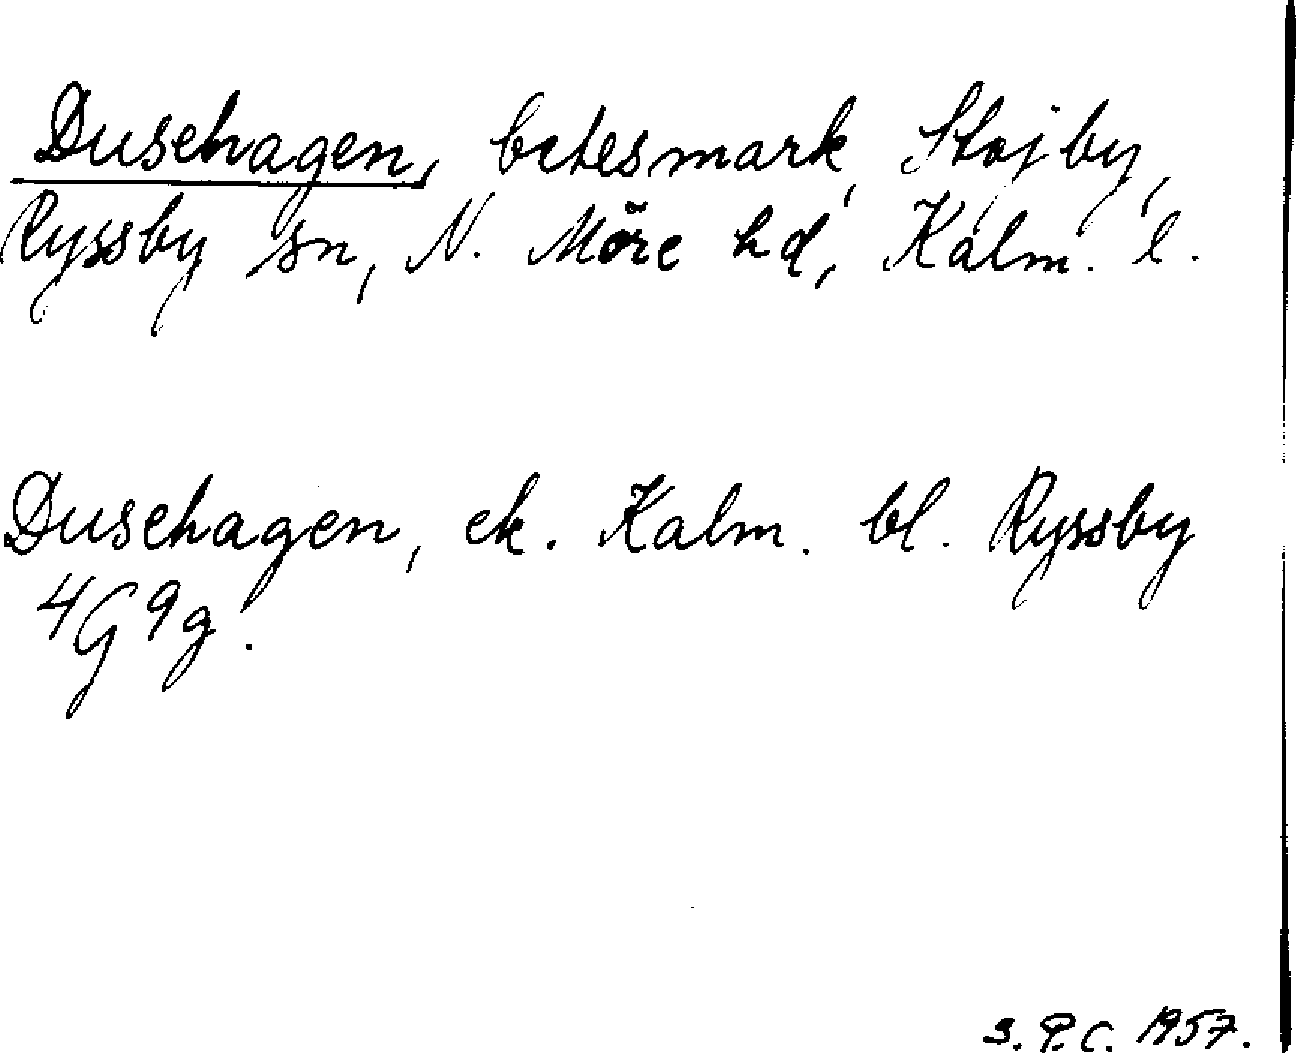 Dusehagen, betesmark, Stojby,
Ryssby sn, N. Möre hd, Kalm. l.
Dusehagen, ek. Kalm. bl. Ryssby
4G 9g.
S.P.C. 1957.